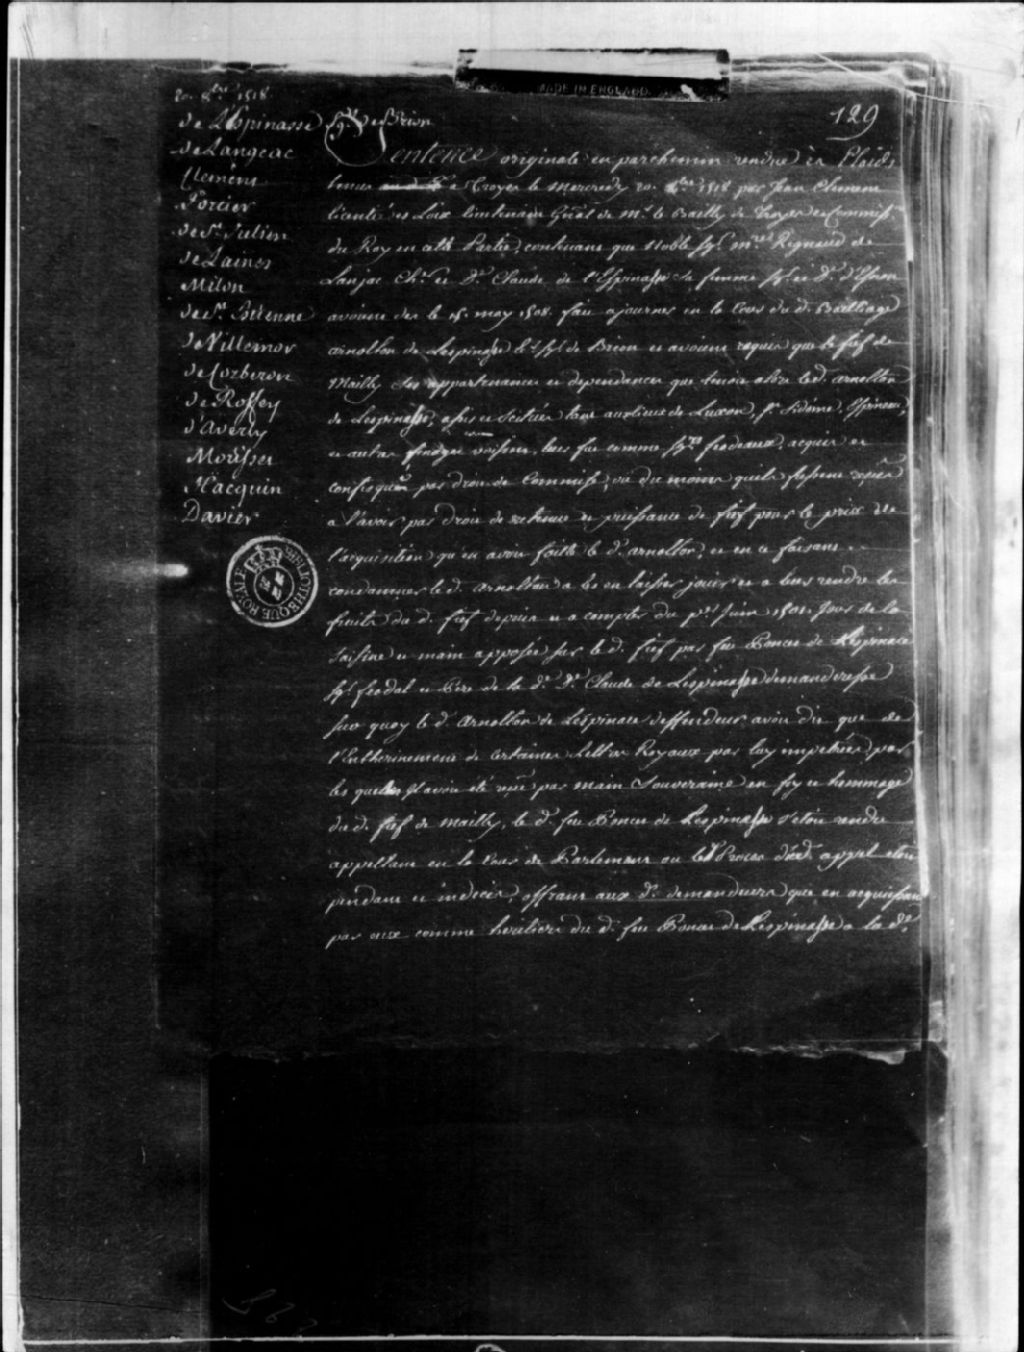 MADE IN ENGLAND.
129
20. 8.bre 1518
de L'Espinasse
de Langeac
Clement
Porcier
de St. Julien
de Laines
Milon
de St. Etienne
de Villemor
de Corberon
de Roffey
d'Avery
Morisset
Hacquin
Davier
Sgr. de Brion
Sentence originale en parchemin rendue és Plaids
tenus a Troyes le Mercredy 20. 8.bre 1518 par Jean Clement
licentié és Loix lieutenant Gnal de Mr. le Bailly de Troyes Commiss.
du Roy en cette Partie, contenant que Noble Sgr. mre Regnaud de
Lanjac Chr. et De. Claude de l'Espinasse sa femme Sgr. et De. d'
avoient des le 15. may 1508. fait ajourner en la Cour du d. Bailliage
arnollon de Lespinasse Sgr. de Brion et avoient requis que le fief de
Mailly ses appartenances et dependances que tenoit led. arnollon
de Lespinasse, assis et scituez tant aux lieux de Luxon, St. Sidôme,
et autres finages voisins, leur fut comme Sgrs feodaux, acquis et
confisqué par droit de Commise, ou du moins quils fussent
a l'avoir par droit de retenue et puissance de fief pour le prix de
l'acquisition qu'en avoit faitte le d. arnollon, et en ce faisant
condamner le d. arnollon a les en laisser jouir et a leur rendre les
fruits du d. fief depuis et a compter du per Juin 1501. Jour de la
saisine et main apposée sur le d. fief par feu Ponces de Lespinace
Sgr. feodal et Pere de la de. De. Claude de Lespinasse demanderesse
sur quoy le d. Arnollon de Lespinace deffendeur avoit dit que de
l'Entherinement de Certaines Lettres Royaux par luy impetrées par
les quelles il avoit été par main Souveraine en foy et hommage
du d. fief de Mailly, le d. feu Ponces de Lespinasse s'étoit rendu
appellant en la Cour de Parlement ou le Proces dud. appel étoit
pendant et indecis, offrant aux ds. demandeurs que en acquiessant
par eux comme heritiers du d. feu Ponces de Lespinasse a la de.
BIBLIOTHEQUE ROYALE